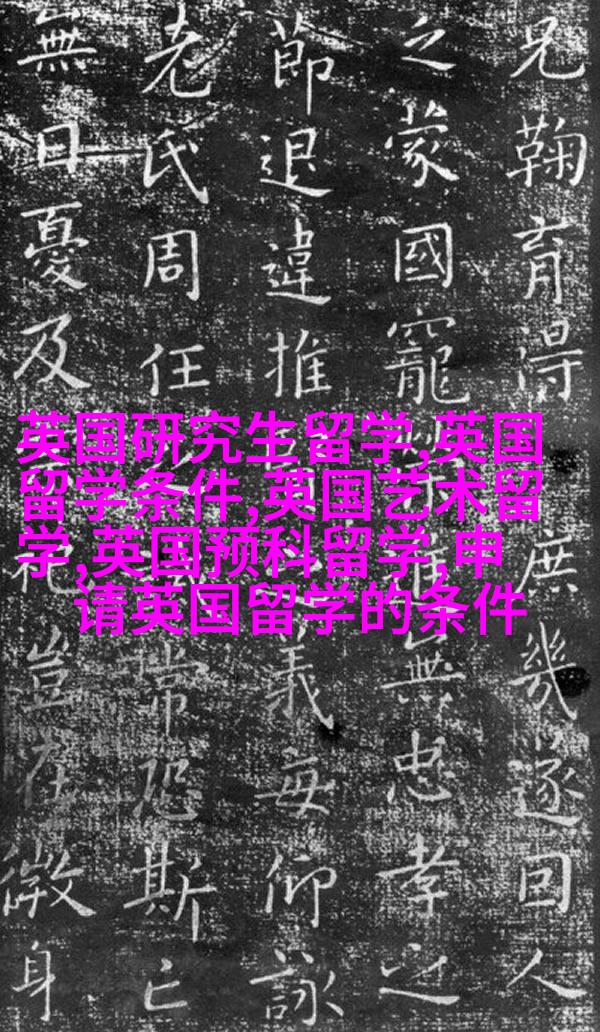 英国研究生留学,英国
留学条件,英国艺术留
学,英国预科留学,申
请英国留学的条件
兄鞠育得庶幾遂因人
之蒙國寵無忠孝之
節退違推義每仰詠
老氏周任常恐斯亡
無日憂及豈在微身